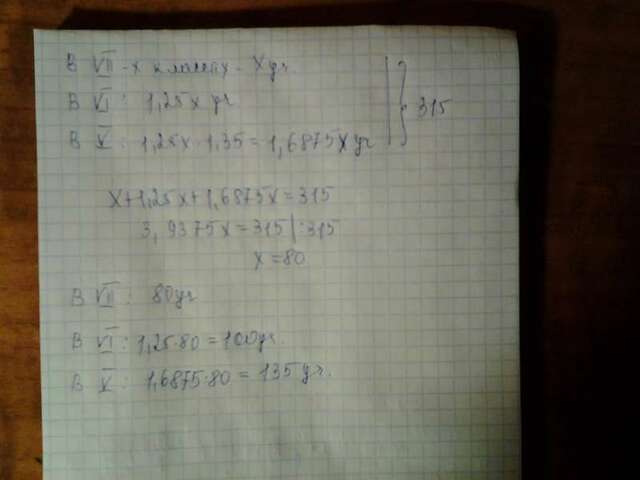 В VII-х классах - х уч.
В VI: 1,25х уч
В V: 1,25х·1,35=1,6875х уч } 315
х+1,25х+1,6875х=315
3,9375х=315|:315
х=80
В VII: 80уч
В VI: 1,25·80=100уч.
В V: 1,6875·80=135уч.